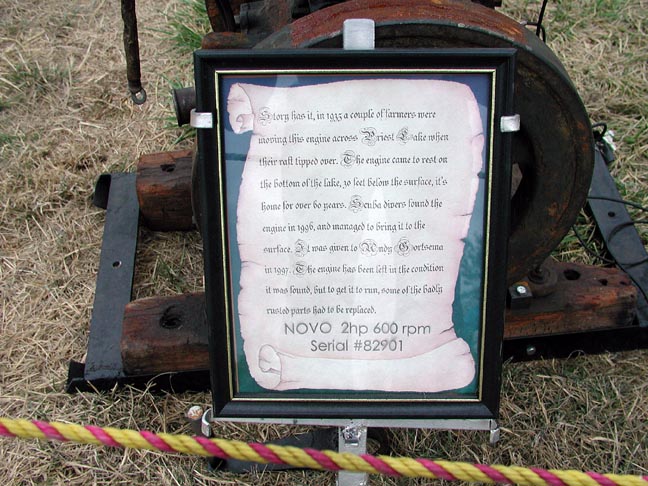 Story has it, in 1935 a couple of farmers were
moving this engine across Priest Lake when
their raft tipped over. The engine came to rest on
the bottom of the lake, 30 feet below the surface, it's
home for over 60 years. Scuba divers found the
engine in 1996, and managed to bring it to the
surface. It was given to Andy Gortsema
in 1997. The engine has been left in the condition
it was found, but to get it to run, some of the badly
rusted parts had to be replaced.
NOVO 2hp 600 rpm
Serial #82901